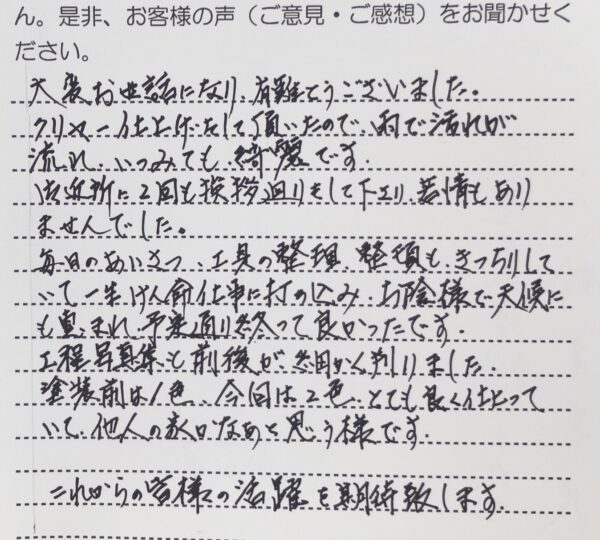 ん。是非、お客様の声（ご意見・ご感想）をお聞かせく
ださい。
大変お世話になり、有難とうございました。
クリヤー仕上げをして頂いたので、雨で汚れが
流れ、いつみても、綺麗です。
御近所に2回も挨拶廻りをして下さり、苦情もあり
ませんでした。
毎日のあいさつ、工具の整理、整頓も、きっちりして
いて一生けん命仕事に打の込み、お陰様で天候に
も恵まれ、予定通り終って良かったです。
工程写真集も前後が、細かく判りました。
塗装前は1色、今回は2色、とても良く仕上って
いて、他人の家かなあと思う様です。
これからの皆様の活躍を期待致します。